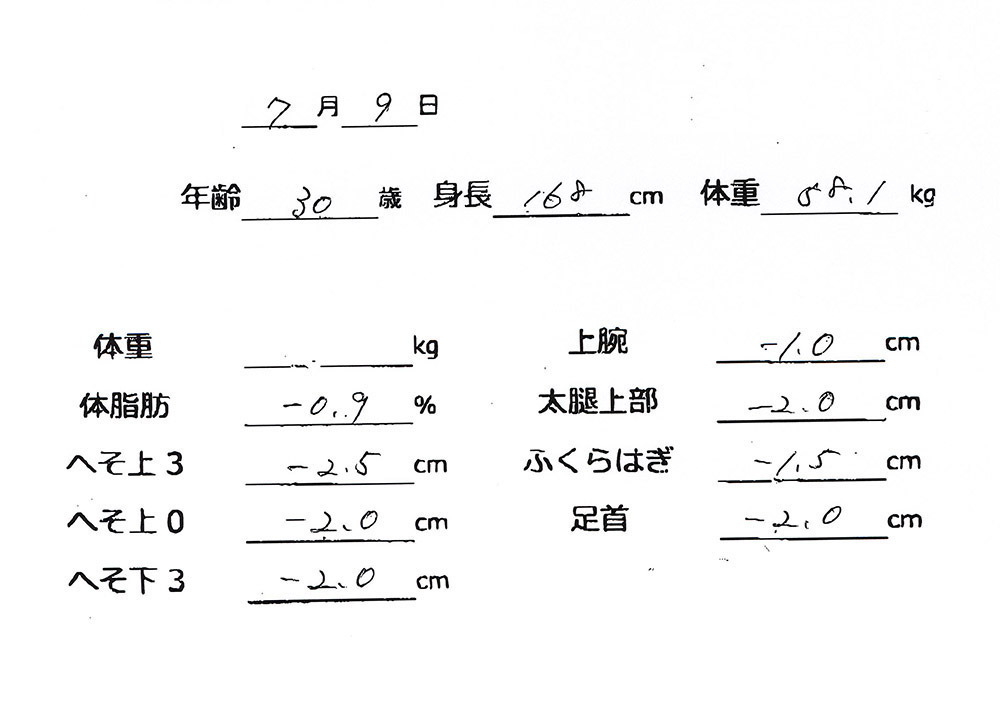 7月9日
年齢 30 歳 身長 168 cm 体重 58.1 kg
体重 kg 上腕 -1.0 cm
体脂肪 -0.9 % 太腿上部 -2.0 cm
へそ上3 -2.5 cm ふくらはぎ -1.5 cm
へそ上0 -2.0 cm 足首 -2.0 cm
へそ下3 -2.0 cm